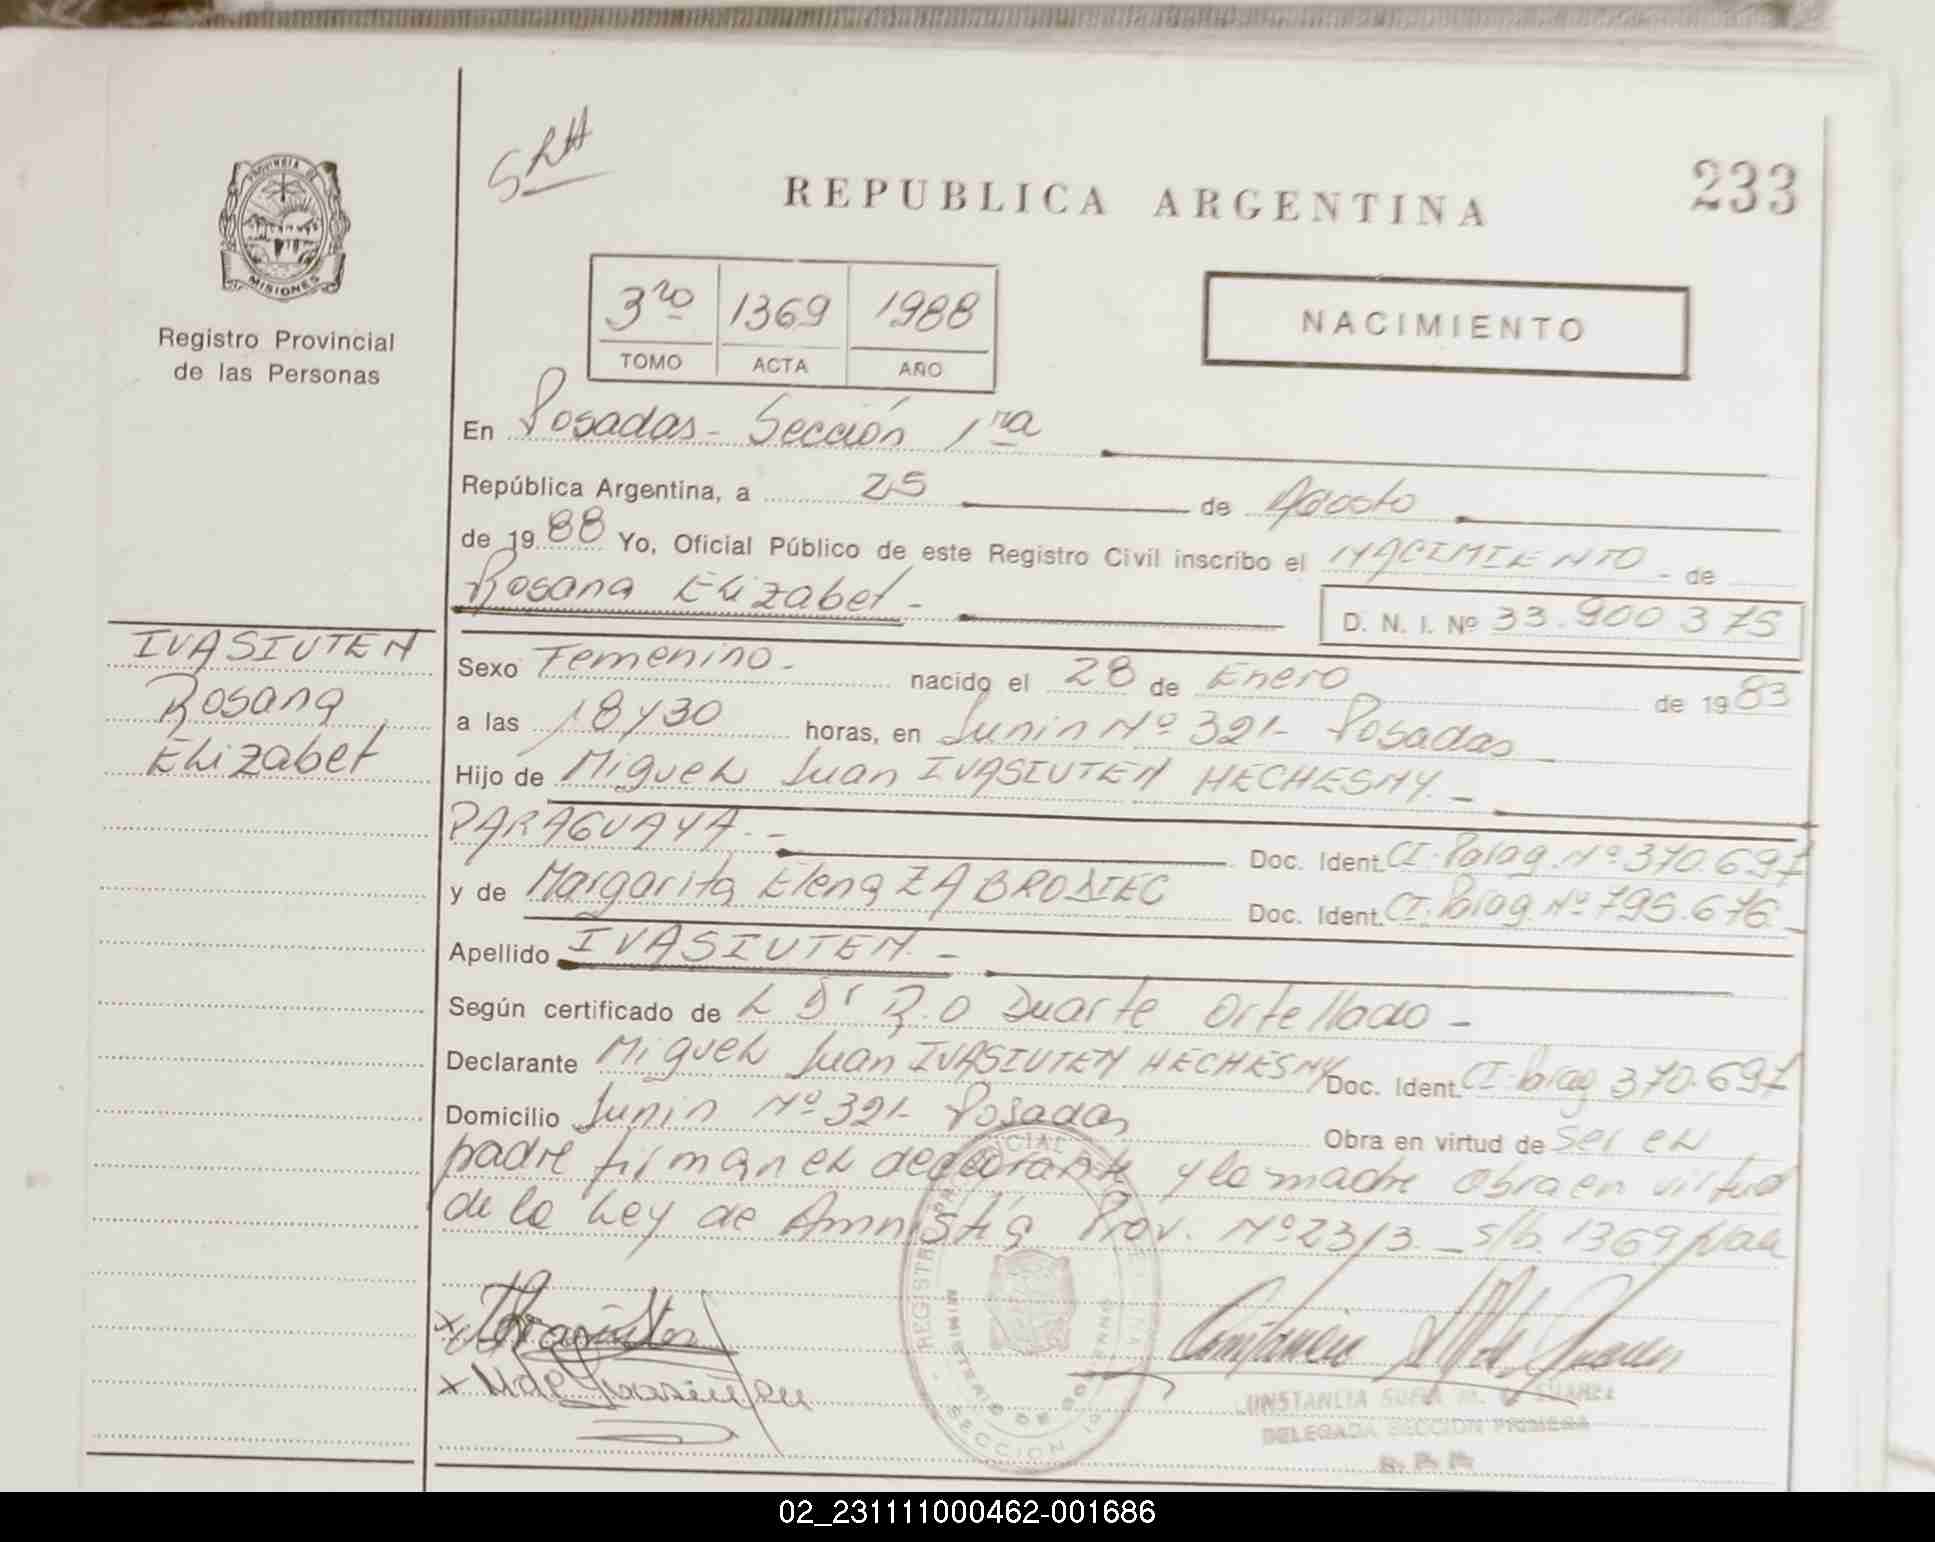 SRH
REPUBLICA ARGENTINA
233
PROVINCIA DE
MISIONES
Registro Provincial
de las Personas
3ro 1369 1988
TOMO ACTA AÑO
NACIMIENTO
En Posadas - Sección 1ra
República Argentina, a 25 de Agosto
de 1988 Yo, Oficial Público de este Registro Civil inscribo el NACIMIENTO - de
Rosana Elizabet -
D. N. I. Nº 33.900 375
IVASIUTEN
Rosana
Elizabet
Sexo Femenino - nacido el 28 de Enero de 1983
a las 18 y 30 horas, en Junin Nº 321- Posadas
Hijo de Miguel Juan IVASIUTEN HECHESNY. -
PARAGUAYA. - Doc. Ident. CI. Parag. Nº 370.697
y de Margarita Elena ZABRODIEC Doc. Ident. CI. Parag. Nº 795.676 -
Apellido IVASIUTEN. -
Según certificado de L Dr R.O Duarte Ortellado -
Declarante Miguel Juan IVASIUTEN HECHESNY Doc. Ident. CI. Parag 370.697
Domicilio Junin Nº 321- Posadas Obra en virtud de ser el
padre firman el declarante y la madre Obra en virtud
de la Ley de Amnistia Prov. Nº 2313. - s/b. 1369 Vale
REGISTRO PROVINCIAL
MINISTERIO DE GOBIERNO
SECCION 1a
CONSTANCIA SOFIA M. DE SUAREZ
DELEGADA SECCION PRIMERA
02_231111000462-001686